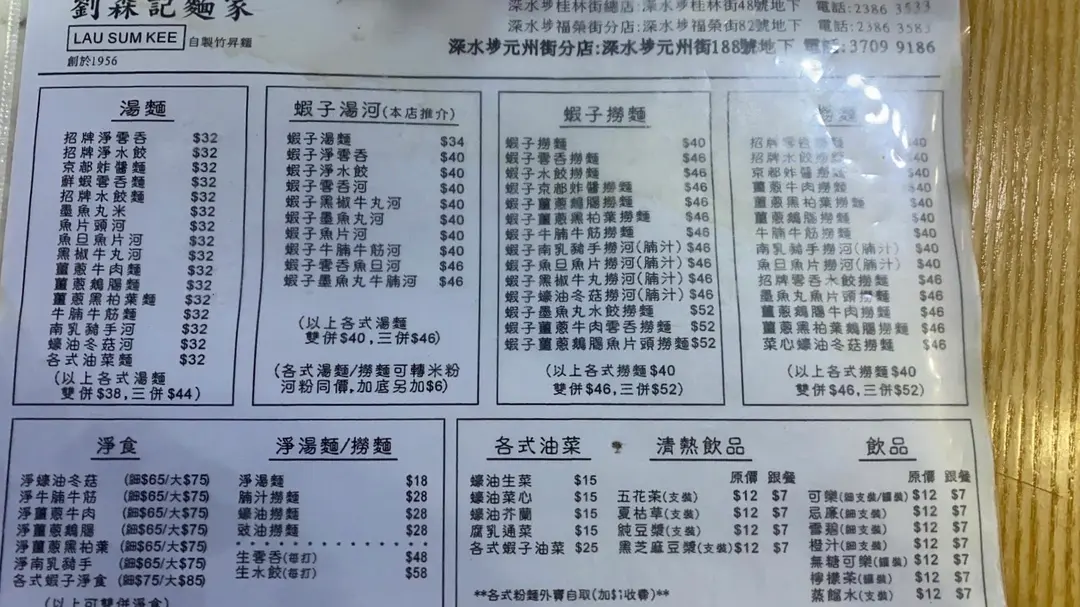 劉森記麵家
LAU SUM KEE 自製竹昇麵
創於1956
深水埗桂林街總店:深水埗桂林街48號地下 電話:2386 3533
深水埗福榮街分店:深水埗福榮街82號地下 電話:2386 3583
深水埗元州街分店:深水埗元州街188號地下 電話:3709 9186
湯麵
招牌淨雲吞 $32
招牌淨水餃 $32
京都炸醬麵 $32
鮮蝦雲吞麵 $32
招牌水餃麵 $32
墨魚丸米 $32
魚片頭河 $32
魚旦魚片河 $32
黑椒牛丸河 $32
薑蔥牛肉麵 $32
薑蔥鵝腸麵 $32
薑蔥黑柏葉麵 $32
牛腩牛筋麵 $32
南乳豬手河 $32
蠔油冬菇河 $32
各式油菜麵 $32
(以上各式湯麵
雙併$38,三併$44)
蝦子湯河(本店推介)
蝦子湯麵 $34
蝦子淨雲吞 $40
蝦子淨水餃 $40
蝦子雲吞河 $40
蝦子黑椒牛丸河 $40
蝦子墨魚丸河 $40
蝦子魚片河 $40
蝦子牛腩牛筋河 $40
蝦子雲吞魚旦河 $46
蝦子墨魚丸牛腩河 $46
(以上各式湯麵
雙併$40,三併$46)
(各式湯麵/撈麵可轉米粉
河粉同價,加底另加$6)
蝦子撈麵
蝦子撈麵 $40
蝦子雲吞撈麵 $46
蝦子水餃撈麵 $46
蝦子京都炸醬撈麵 $46
蝦子薑蔥鵝腸撈麵 $46
蝦子薑蔥黑柏葉撈麵 $46
蝦子牛腩牛筋撈麵 $46
蝦子南乳豬手撈河(腩汁) $46
蝦子魚旦魚片撈河(腩汁) $46
蝦子黑椒牛丸撈河(腩汁) $46
蝦子蠔油冬菇撈河(腩汁) $46
蝦子墨魚丸水餃撈麵 $52
蝦子薑蔥牛肉雲吞撈麵 $52
蝦子薑蔥鵝腸魚片頭撈麵 $52
(以上各式撈麵$40
雙併$46,三併$52)
撈麵
招牌雲吞撈麵 $40
招牌水餃撈麵 $40
京都炸醬撈麵 $40
薑蔥牛肉撈麵 $40
薑蔥黑柏葉撈麵 $40
薑蔥鵝腸撈麵 $40
牛腩牛筋撈麵 $40
南乳豬手撈河(腩汁) $40
魚旦魚片撈河(腩汁) $40
招牌雲吞水餃撈麵 $46
墨魚丸魚片頭撈麵 $46
薑蔥鵝腸牛肉撈麵 $46
薑蔥黑柏葉鵝腸撈麵 $46
菜心蠔油冬菇撈麵 $46
(以上各式撈麵$40
雙併$46,三併$52)
淨食
淨蠔油冬菇 (細$65/大$75)
淨牛腩牛筋 (細$65/大$75)
淨薑蔥牛肉 (細$65/大$75)
淨薑蔥鵝腸 (細$65/大$75)
淨薑蔥黑柏葉 (細$65/大$75)
淨南乳豬手 (細$65/大$75)
各式蝦子淨食 (細$75/大$85)
(以上可雙併淨食)
淨湯麵/撈麵
淨湯麵 $18
腩汁撈麵 $28
蠔油撈麵 $28
豉油撈麵 $28
生雲吞(每打) $48
生水餃(每打) $58
各式油菜
蠔油生菜 $15
蠔油菜心 $15
蠔油芥蘭 $15
腐乳通菜 $15
各式蝦子油菜 $25
清熱飲品
原價 跟餐
五花茶(支裝) $12 $7
夏枯草(支裝) $12 $7
鈍豆漿(支裝) $12 $7
黑芝麻豆漿(支裝) $12 $7
飲品
原價 跟餐
可樂(細支裝/罐裝) $12 $7
忌廉(細支裝) $12 $7
雪碧(細支裝) $12 $7
橙汁(細支裝) $12 $7
無糖可樂(罐裝) $12 $7
檸檬茶(罐裝) $12 $7
蒸餾水(支裝) $12 $7
**各式粉麵外賣自取(加$1收費)**